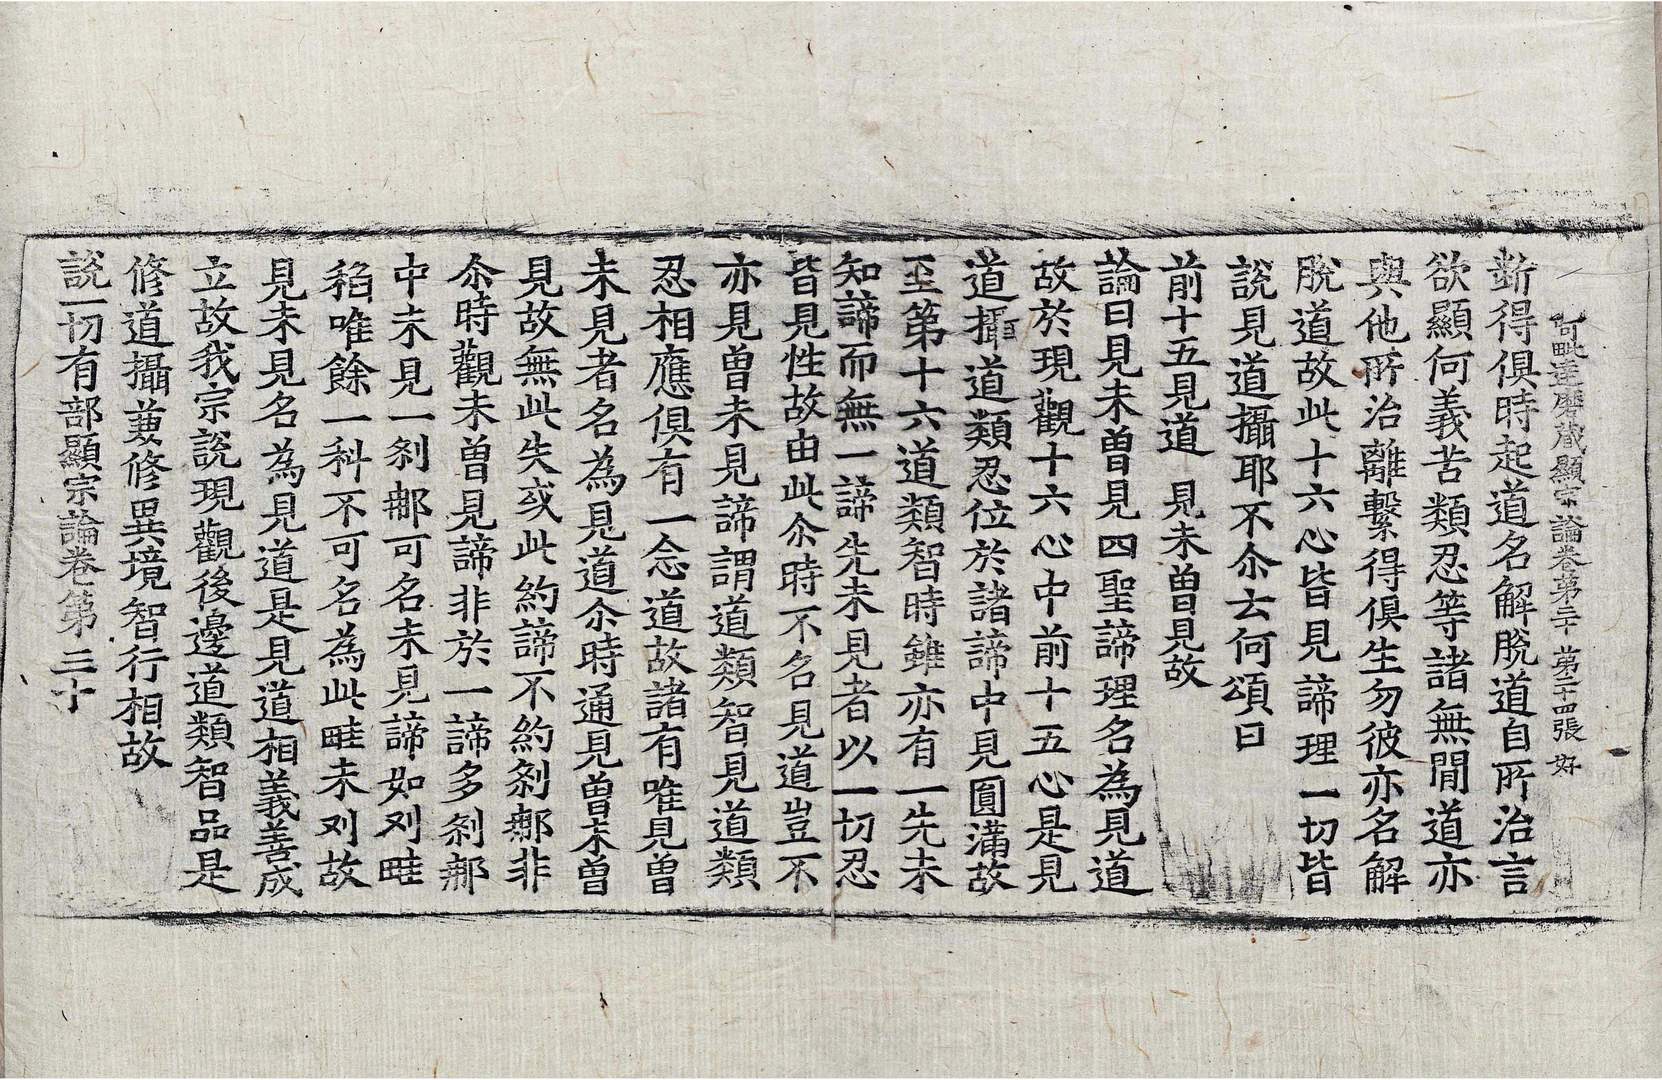 阿毗達磨藏顯宗論卷第三十 第二十四張 好
斷得俱時起道名解脫道自所治言
欲顯何義苦類忍等諸無間道亦
與他所治離繫得俱生勿彼亦名解
脫道故此十六心皆見諦理一切皆
說見道攝耶不尒云何頌曰
前十五見道 見未曾見故
論曰見未曾見四聖諦理名為見道
故於現觀十六心中前十五心是見
道攝道類忍位於諸諦中見圓滿故
至第十六道類智時雖亦有一先未
知諦而無一諦先未見者以一切忍
皆見性故由此尒時不名見道豈不
亦見曾未見諦謂道類智見道類
忍相應俱有一念道故諸有唯見曾
未見者名為見道尒時通見曾未曾
見故無此失或此約諦不約剎那非
尒時觀未曾見諦非於一諦多剎那
中未見一剎那可名未見諦如刈畦
稻唯餘一科不可名為此畦未刈故
見未見名為見道是見道相義善成
立故我宗說現觀後邊道類智品是
修道攝兼修異境智行相故
說一切有部顯宗論卷第三十